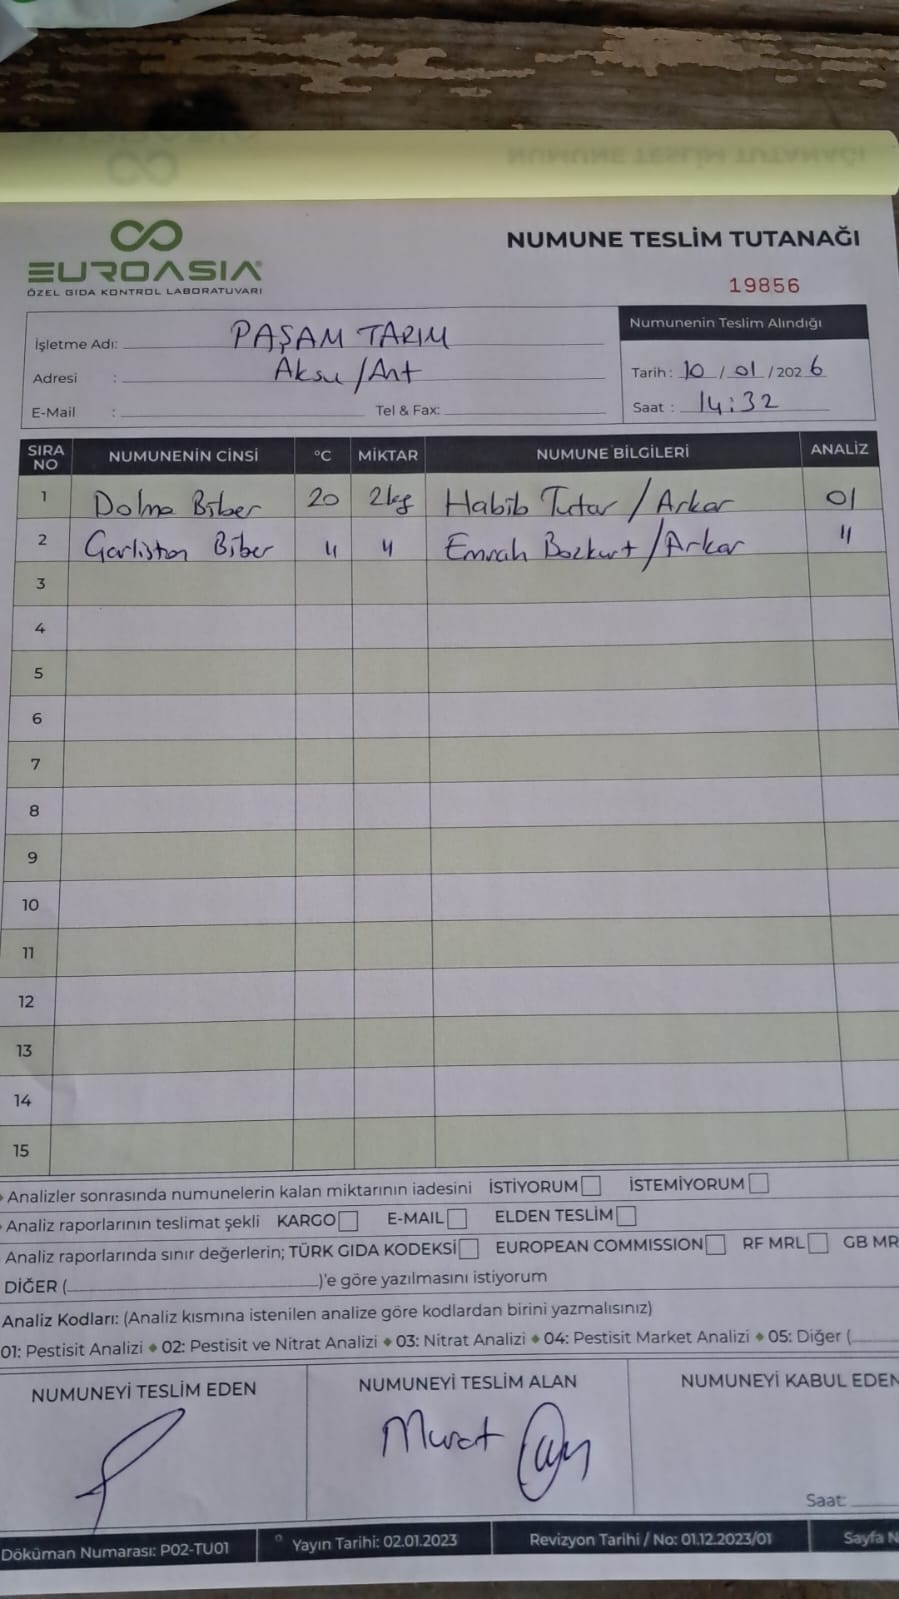 NUMUNE TESLİM TUTANAĞI
EUROASIA
ÖZEL GIDA KONTROL LABORATUVARI
NUMUNE TESLİM TUTANAĞI
19856
İşletme Adı: PAŞAM TARIM
Adresi : Aksu/Ant
E-Mail : Tel & Fax:
Numunenin Teslim Alındığı
Tarih: 10 / 01 / 2026
Saat : 14:32
SIRA NO NUMUNENİN CİNSİ °C MİKTAR NUMUNE BİLGİLERİ ANALİZ
1 Dolma Biber 20 2kg Habib Tutar / Arkar 01
2 Garliston Biber " " Emrah Bozkurt / Arkar "
3
4
5
6
7
8
9
10
11
12
13
14
15
Analizler sonrasında numunelerin kalan miktarının iadesini İSTİYORUM İSTEMİYORUM
Analiz raporlarının teslimat şekli KARGO E-MAIL ELDEN TESLİM
Analiz raporlarında sınır değerlerin; TÜRK GIDA KODEKSİ EUROPEAN COMMISSION RF MRL GB MR
DİĞER (                    )'e göre yazılmasını istiyorum
Analiz Kodları: (Analiz kısmına istenilen analize göre kodlardan birini yazmalısınız)
01: Pestisit Analizi ◆ 02: Pestisit ve Nitrat Analizi ◆ 03: Nitrat Analizi ◆ 04: Pestisit Market Analizi ◆ 05: Diğer (
NUMUNEYİ TESLİM EDEN NUMUNEYİ TESLİM ALAN NUMUNEYİ KABUL EDEN
Murat
Saat:
Döküman Numarası: P02-TU01 Yayın Tarihi: 02.01.2023 Revizyon Tarihi / No: 01.12.2023/01 Sayfa N